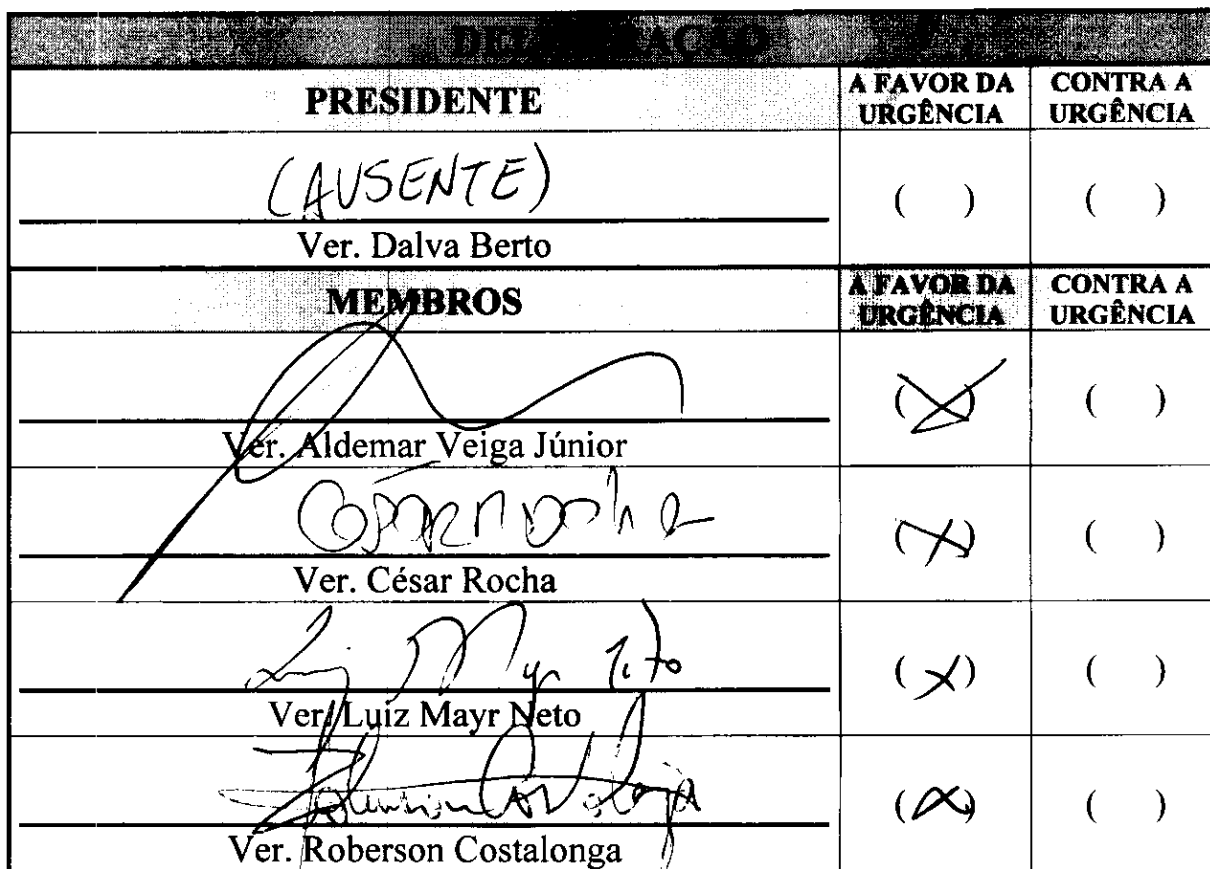 DELIBERAÇÃO
PRESIDENTE
A FAVOR DA URGÊNCIA
CONTRA A URGÊNCIA
(AUSENTE)
( ) ( )
Ver. Dalva Berto
MEMBROS
A FAVOR DA URGÊNCIA
CONTRA A URGÊNCIA
(X) ( )
Ver. Aldemar Veiga Júnior
César Rocha
(X) ( )
Ver. César Rocha
Luiz Mayr Neto
(X) ( )
Ver. Luiz Mayr Neto
Roberson Costalonga
(X) ( )
Ver. Roberson Costalonga